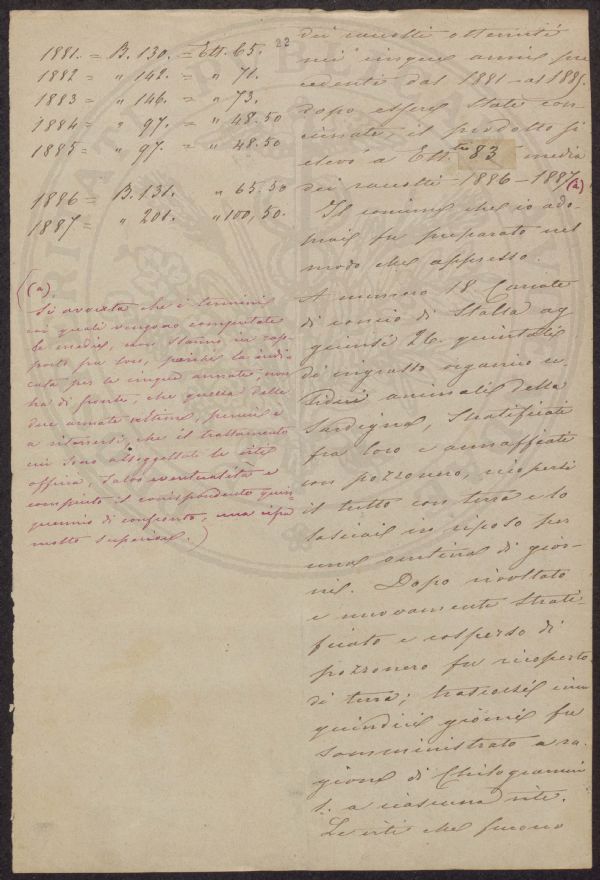 22
1881. = B. 130. = Ett. 65.
1882 = " 142. = " 71.
1883 = " 146. = " 73.
1884 = " 97. = " 48.50
1885 = " 97. = " 48.50
1886 = B. 131. " 65.50
1887 = " 201. " 100,50.
(a)
Si avverta che i termini
coi quali vengono computate
le medie, non stanno in rap-
porto fra loro, perché la indi-
cata per le cinque annate non
ha di fronte, che quella delle
due annate ultime, perciò è
a ritenersi, che il trattamento
cui sono assoggettate le viti
offrirà, salvo eventualità e
compiuto il corrispondente quin
quennio di confronto, una cifra
molto superiore.)
dei raccolti ottenuti
nei cinque anni pre
cedenti dal 1881 al 1885.
dopo essere state con-
cimate, il prodotto si
elevò a Ett.tri 83 media
dei raccolti 1886 - 1887 (a)
Il concime che io ado-
perai fu preparato nel
modo che appresso.
A numero 18. Carrate
di concio di Stalla ag
giunsi 26. quintali
di ingrasso organico
animali della
Sardigna, Stratificati
fra loro e annaffiati
con pozzonero, ricopersi
il tutto con terra e lo
lasciai in riposo per
una ventina di gior-
ni. Dopo rivoltato
e nuovamente strati-
ficato e cosperso di
pozzonero fu ricoperto
di terra; trascorsi
quindici giorni fu
somministrato a ra-
gione di Chilogrammi
a ciascuna vite.
Le viti che furono